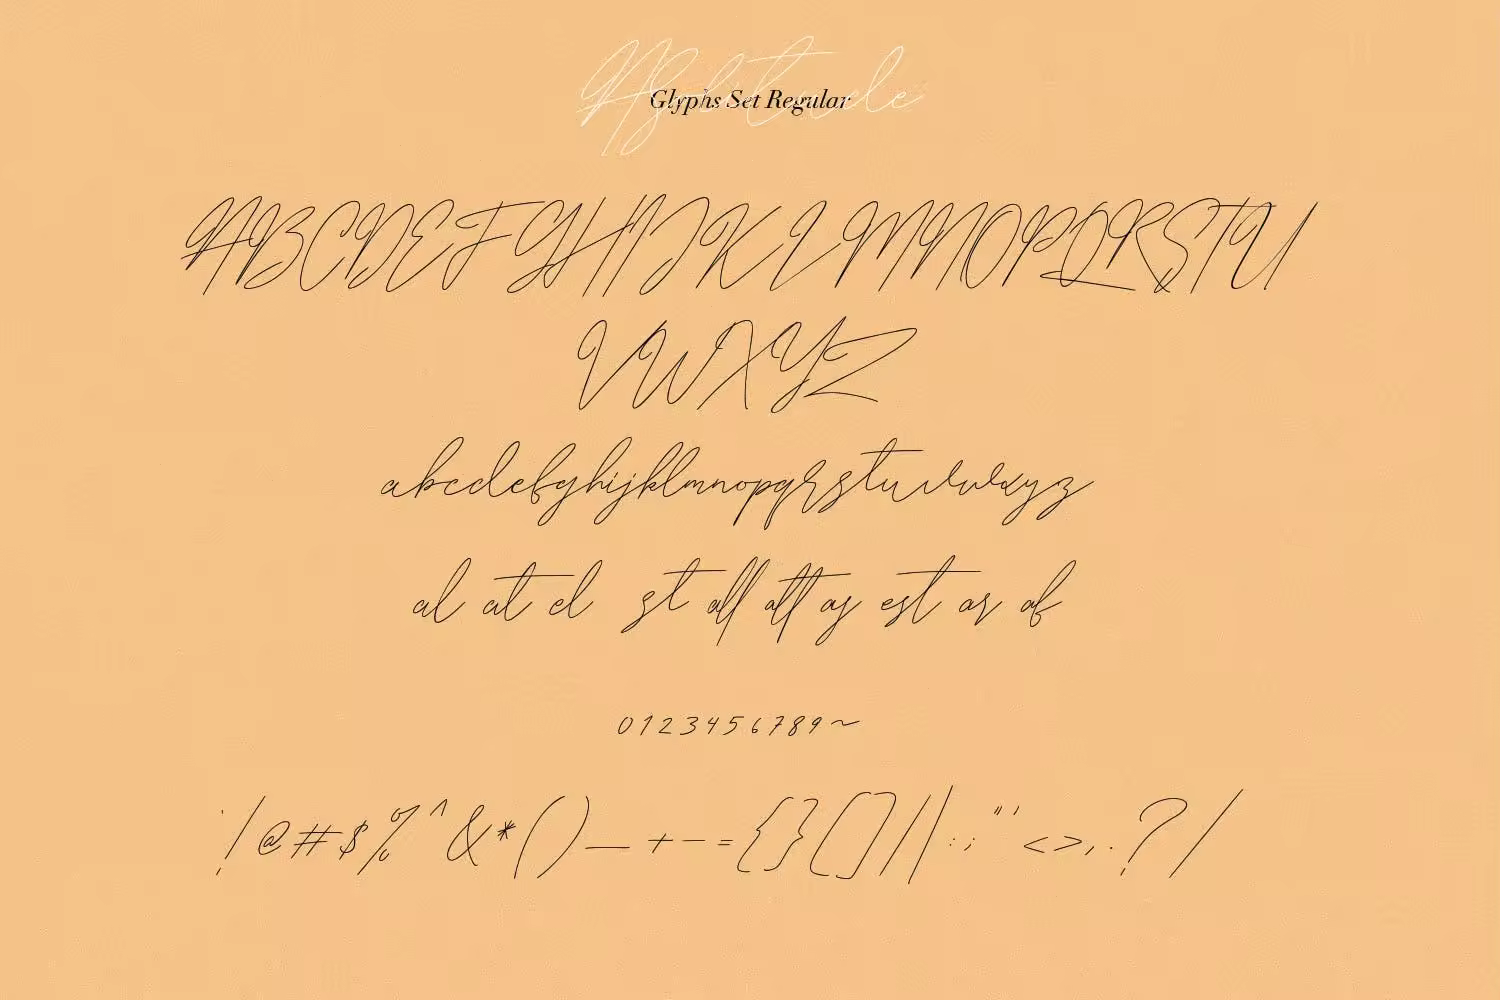 Absolitude
Glyphs Set Regular
ABCDEFGHIJKLMNOPQRSTU
VWXYZ
abcdefghijklmnopqrstuvwxyz
al at el st all att as est ar af
0123456789~
`!@#$%^&*()_+-={}[]\|:;"'<>,.?/